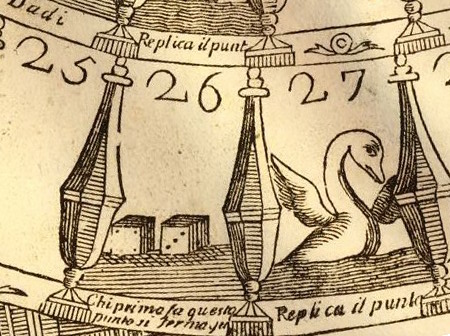 Dadi
Replica il punt
C
25 26 27
Chi primo fa questo
punto si
Replica il punto